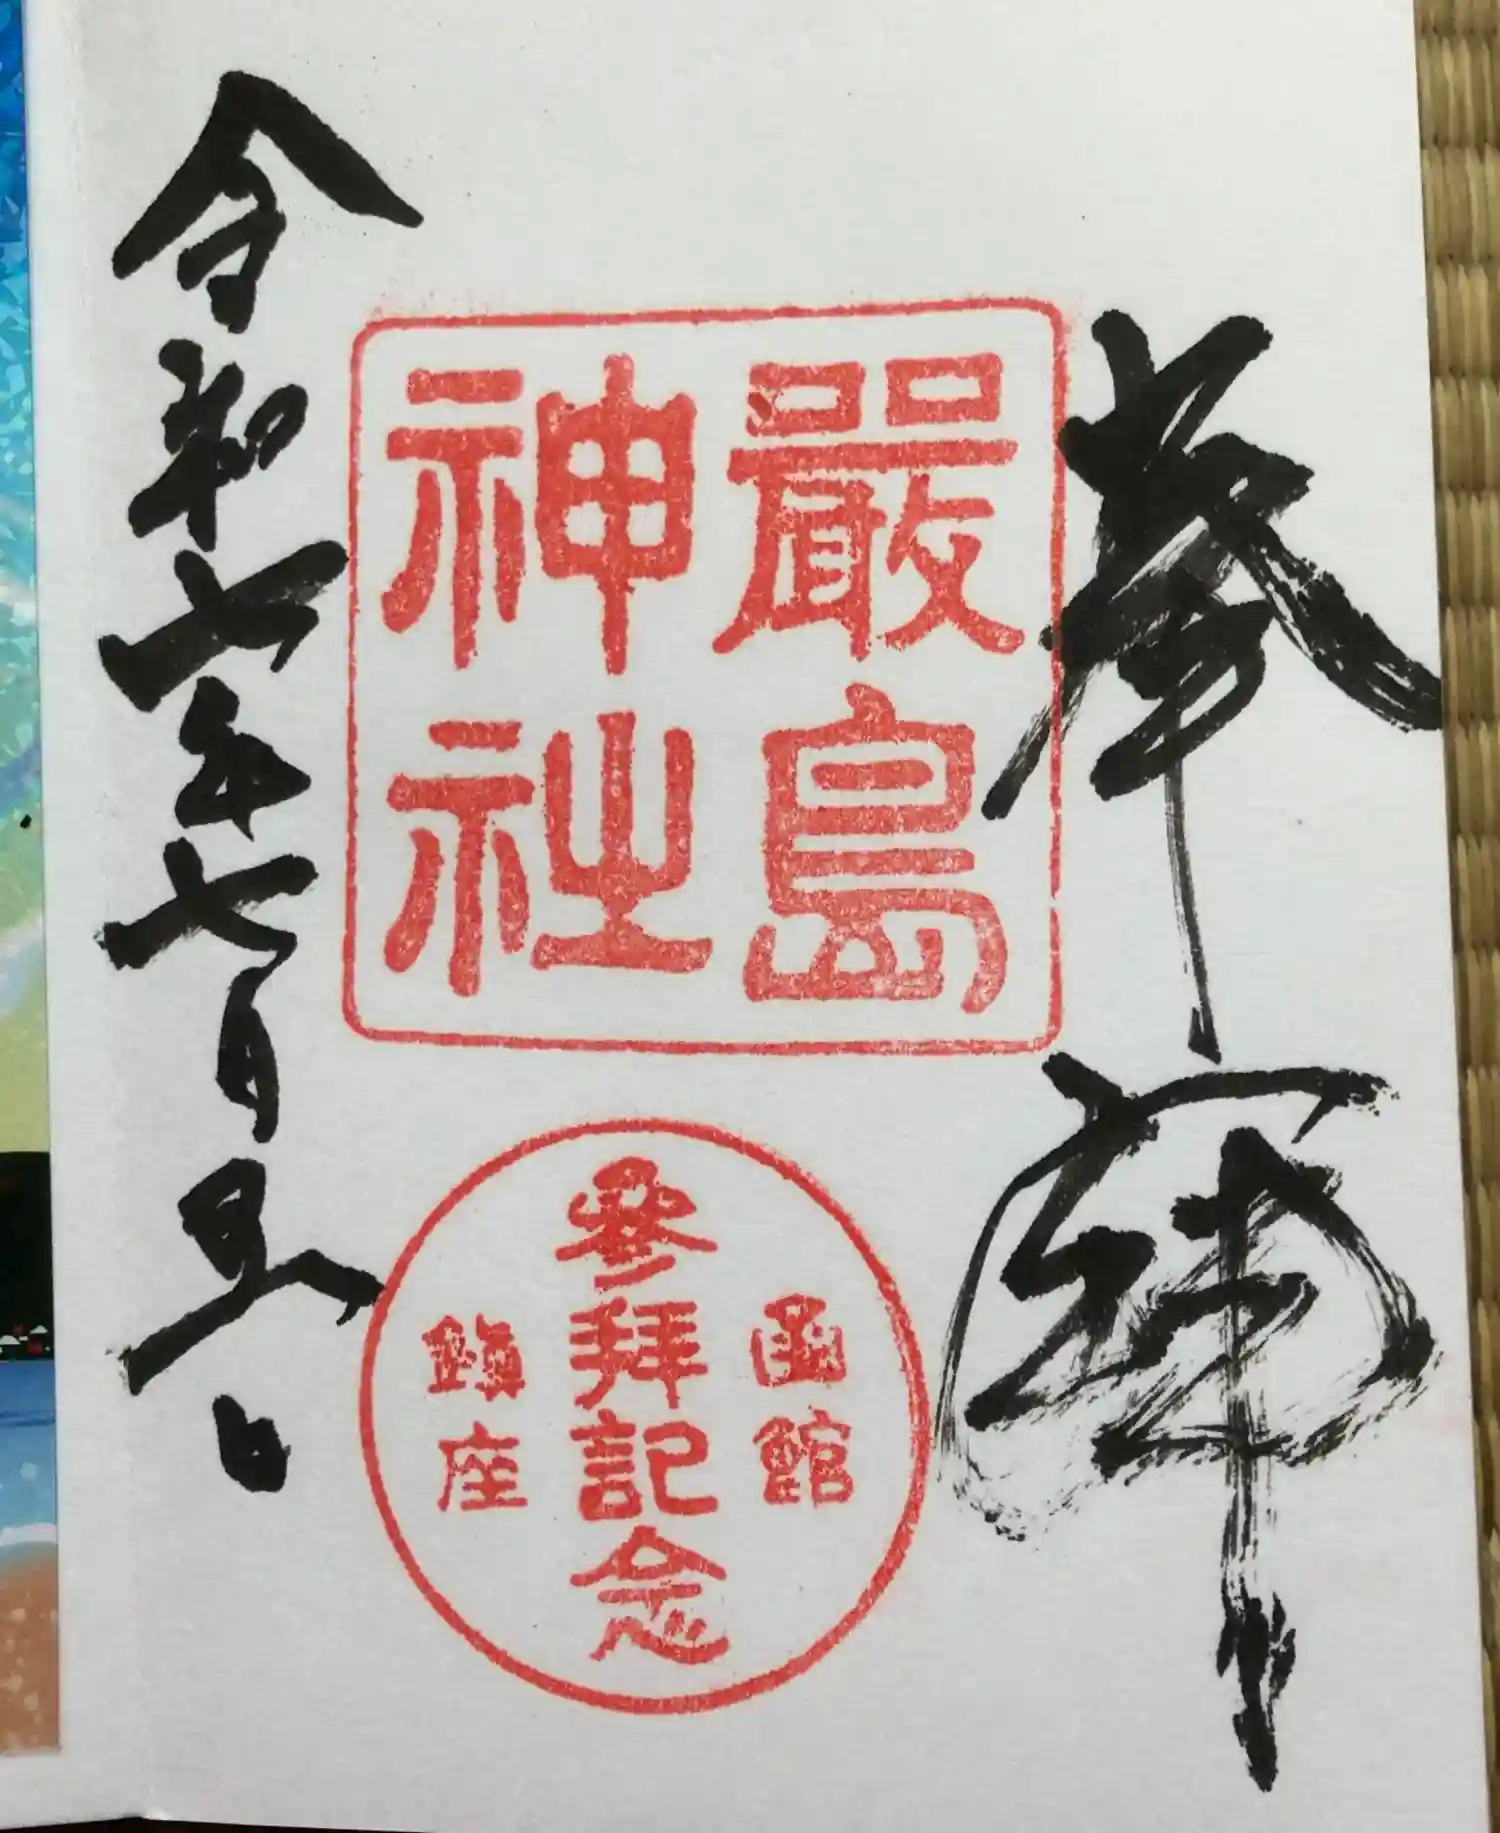 奉拝
嚴島
神社
函館
參拝記念
鎭座
令和七年七月五日